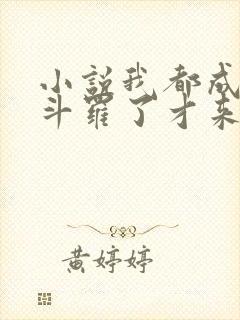 小説我都成
斗羅了才来
黄婷婷